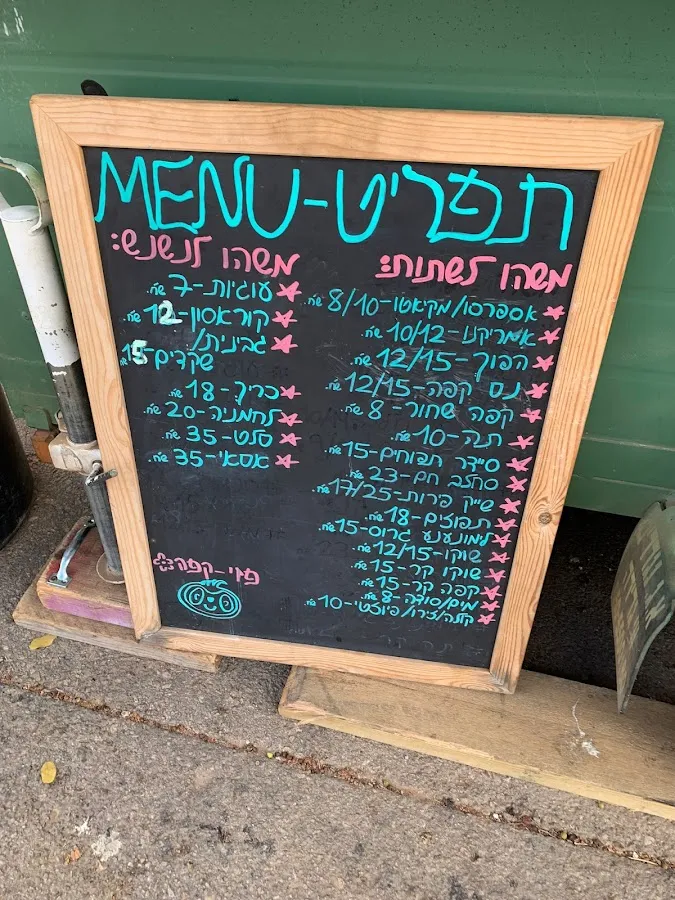 תפריט-MENU
משהו לשתות:
אספרסו/מקיאטו-8/10 שח.
אמריקנו-10/12 שח.
הפוך-12/15 שח.
נס קפה-12/15 שח.
קפה שחור-8 שח.
תה-10 שח.
סיידר תפוחים-15 שח.
סחלב חם-23 שח.
שייק פרות-17/25 שח.
תפוזים-18 שח.
לימונענע גרוס-15 שח.
שוקו-12/15 שח.
שוקו קר-15 שח.
קפה קר-15 שח.
מים/סודה-8 שח.
קולה/זרו/פיוזטי-10 שח.
משהו לנשנש:
עוגיות-7 שח.
קוראסון-12 שח.
גבינית/
שקדים-15 שח.
כריך-18 שח.
לחמניה-20 שח.
סלט-35 שח.
אסאי-35 שח.
פזי-קפה